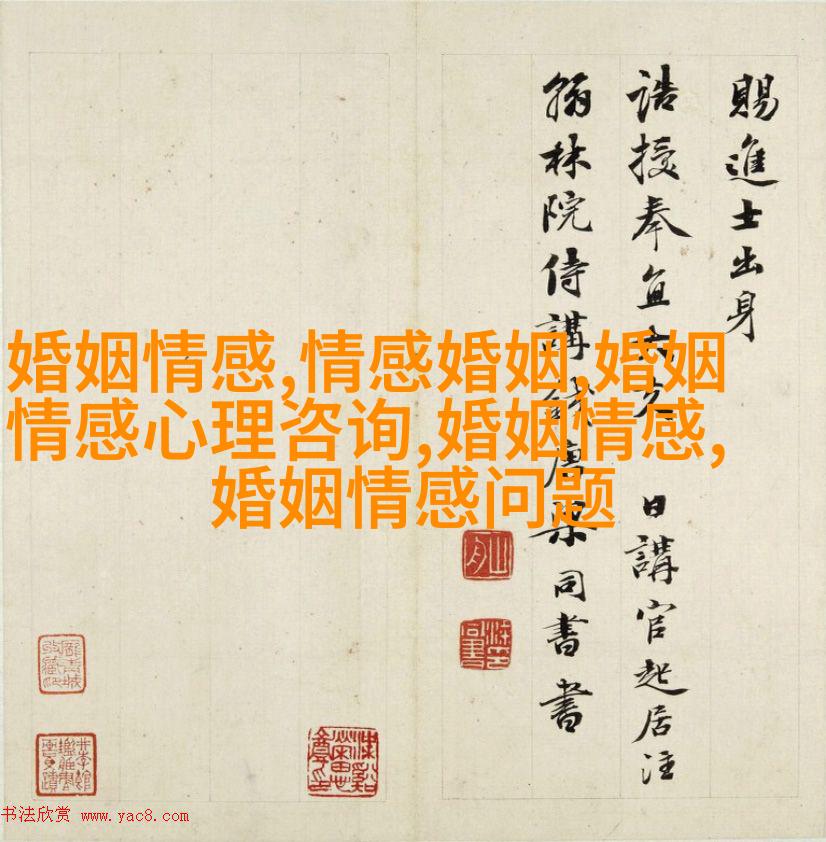 賜進士出身
誥授奉直大夫 日講官起居注
翰林院侍講錢唐梁同書書
婚姻情感,情感婚姻,婚姻
情感心理咨询,婚姻情感,
婚姻情感问题
书法欣赏 www.yac8.com